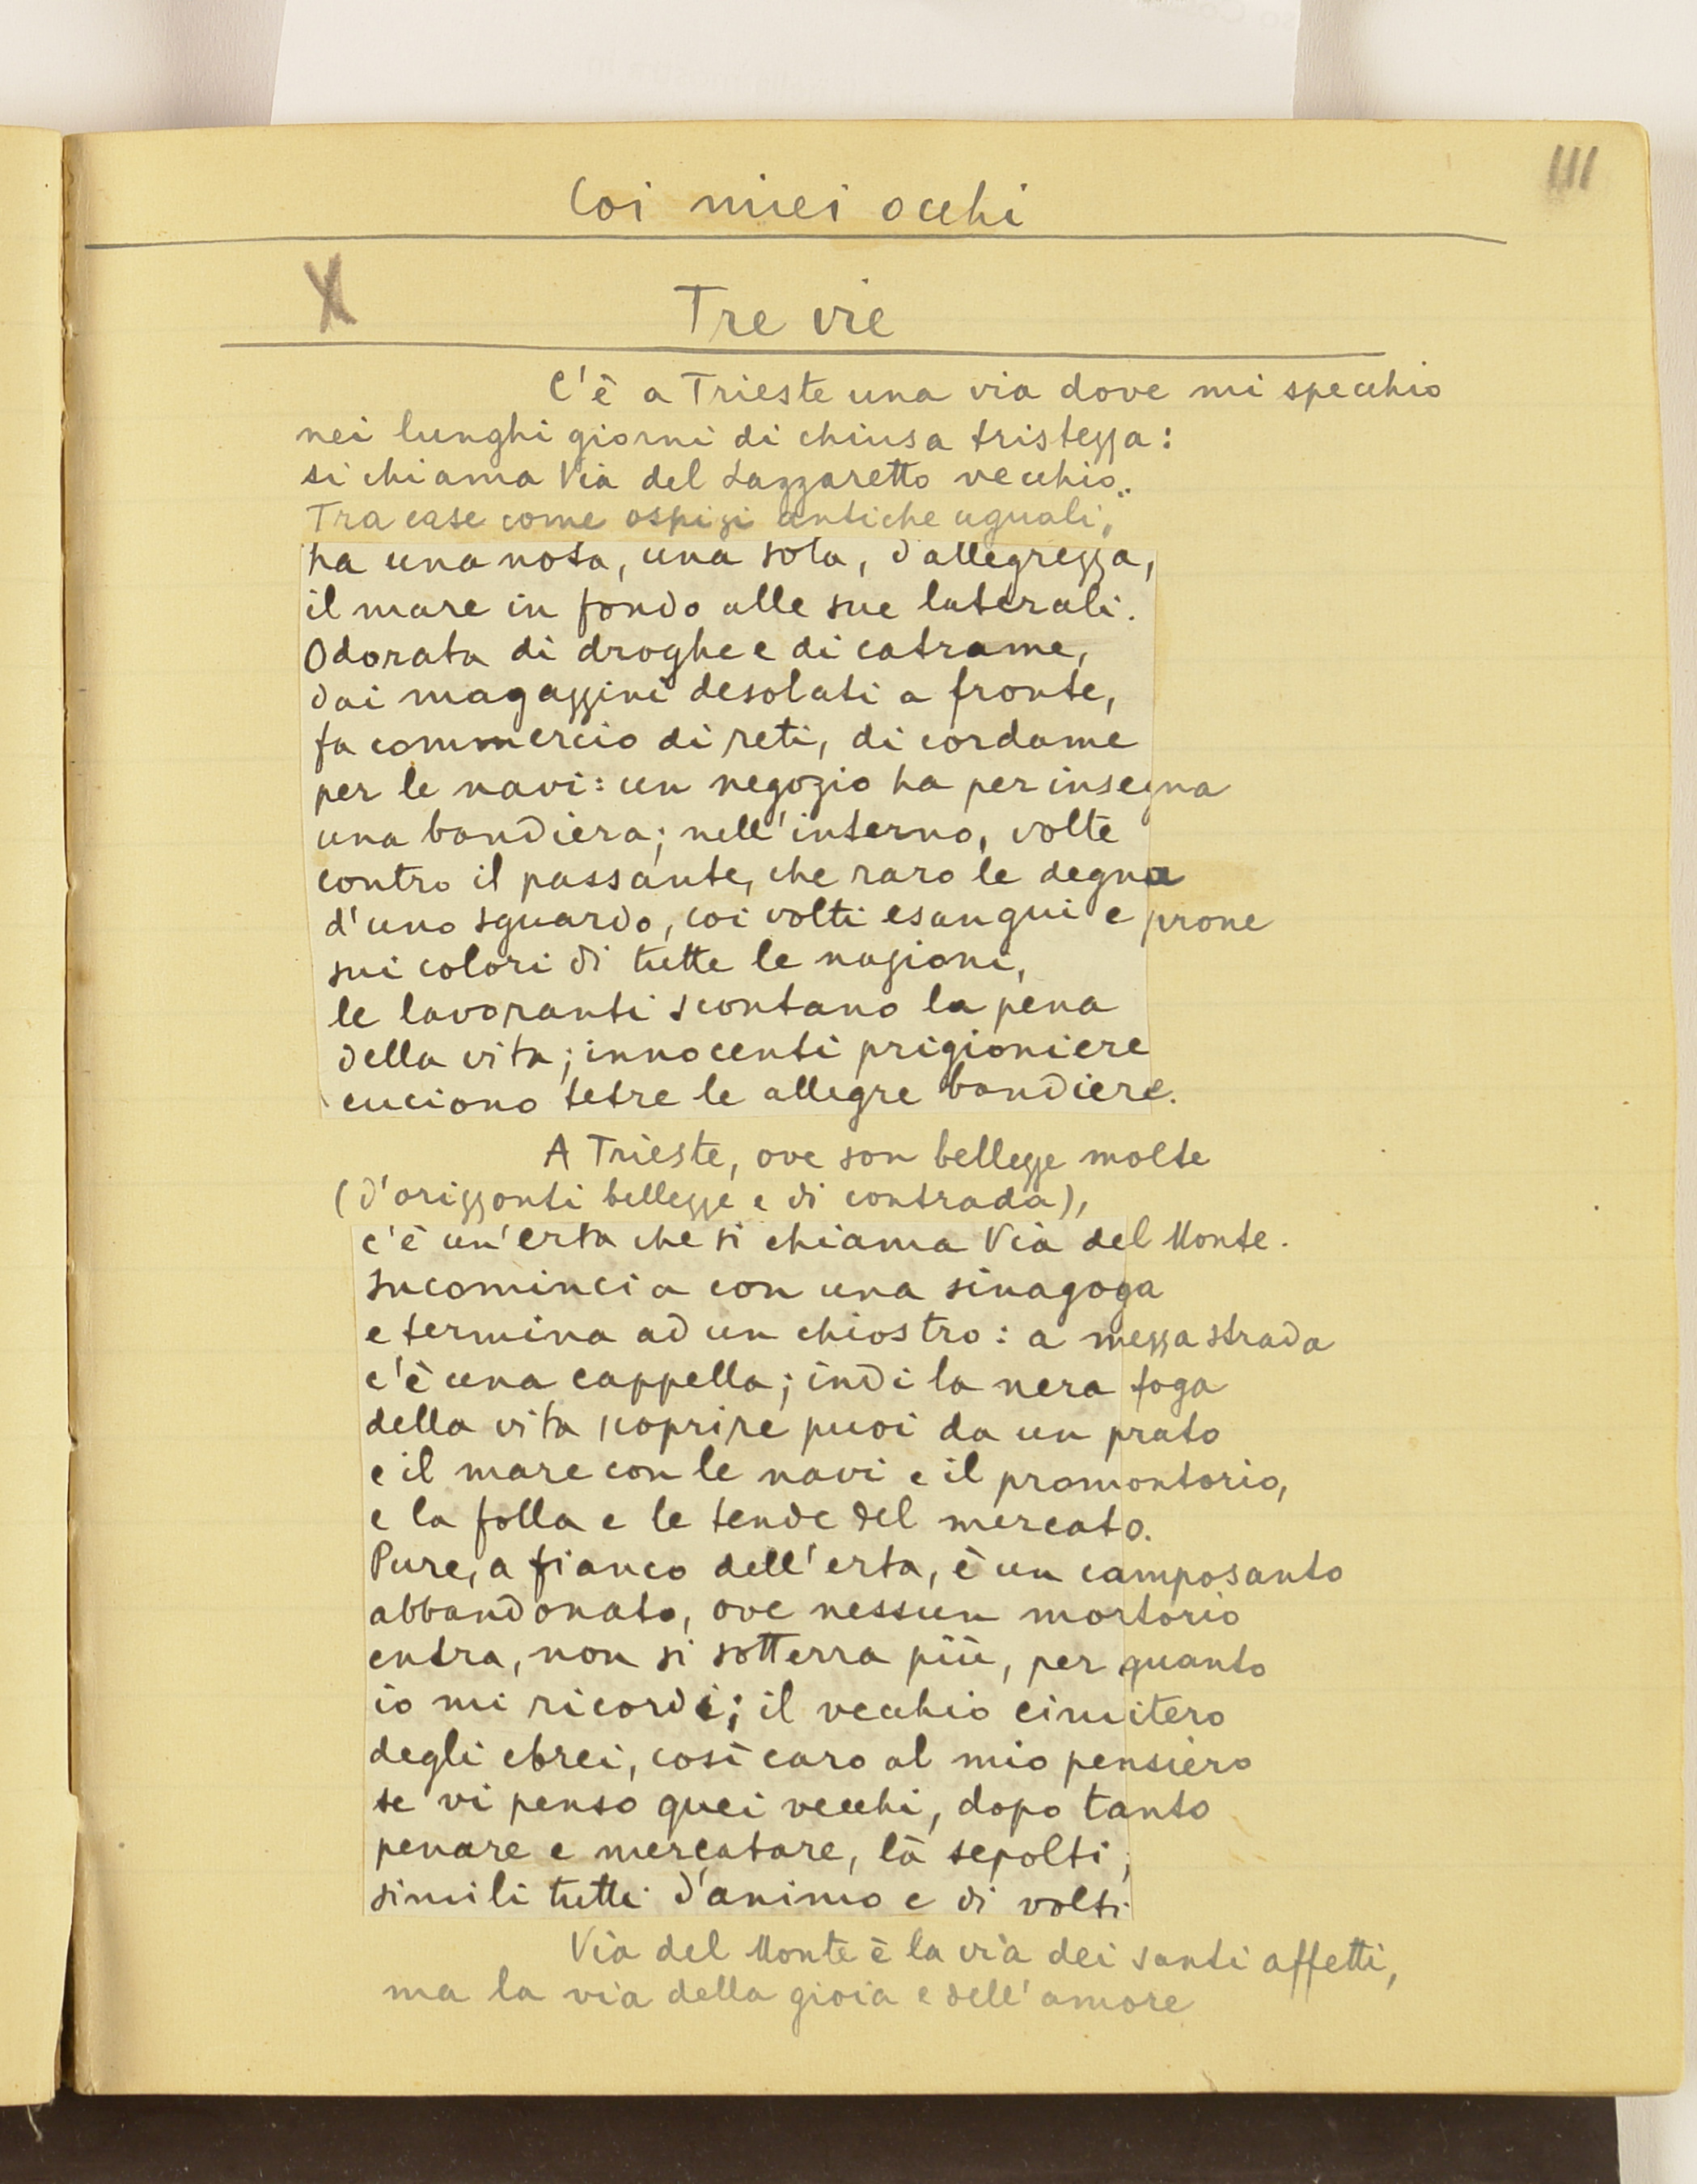 111
Coi miei occhi
X
Tre vie
C'è a Trieste una via dove mi specchio
nei lunghi giorni di chiusa tristezza:
si chiama Via del Lazzaretto vecchio.
Tra case come ospizi antiche uguali,
ha una nota, una sola, d'allegrezza,
il mare in fondo alle sue laterali.
Odorata di droghe e di catrame,
dai magazzini desolati a fronte,
fa commercio di reti, di cordame
per le navi: un negozio ha per insegna
una bandiera; nell'interno, volte
contro il passante, che raro le degna
d'uno sguardo, coi volti esangui e prone
sui colori di tutte le nazioni,
le lavoranti scontano la pena
della vita; innocenti prigioniere
cuciono tetre le allegre bandiere.
A Trieste, ove son bellezze molte
(d'orizzonti bellezze e di contrada),
c'è un'erta che si chiama Via del Monte.
Incomincia con una sinagoga
e termina ad un chiostro: a mezza strada
c'è una cappella; indi la nera foga
della vita scoprire puoi da un prato
e il mare con le navi e il promontorio,
e la folla e le tende del mercato.
Pure, a fianco dell'erta, è un camposanto
abbandonato, ove nessun mortorio
entra, non si sotterra più, per quanto
io mi ricordi; il vecchio cimitero
degli ebrei, così caro al mio pensiero
se vi penso quei vecchi, dopo tanto
penare e mercatare, là sepolti,
simili tutti d'animo e di volti
Via del Monte è la via dei santi affetti,
ma la via della gioia e dell'amore